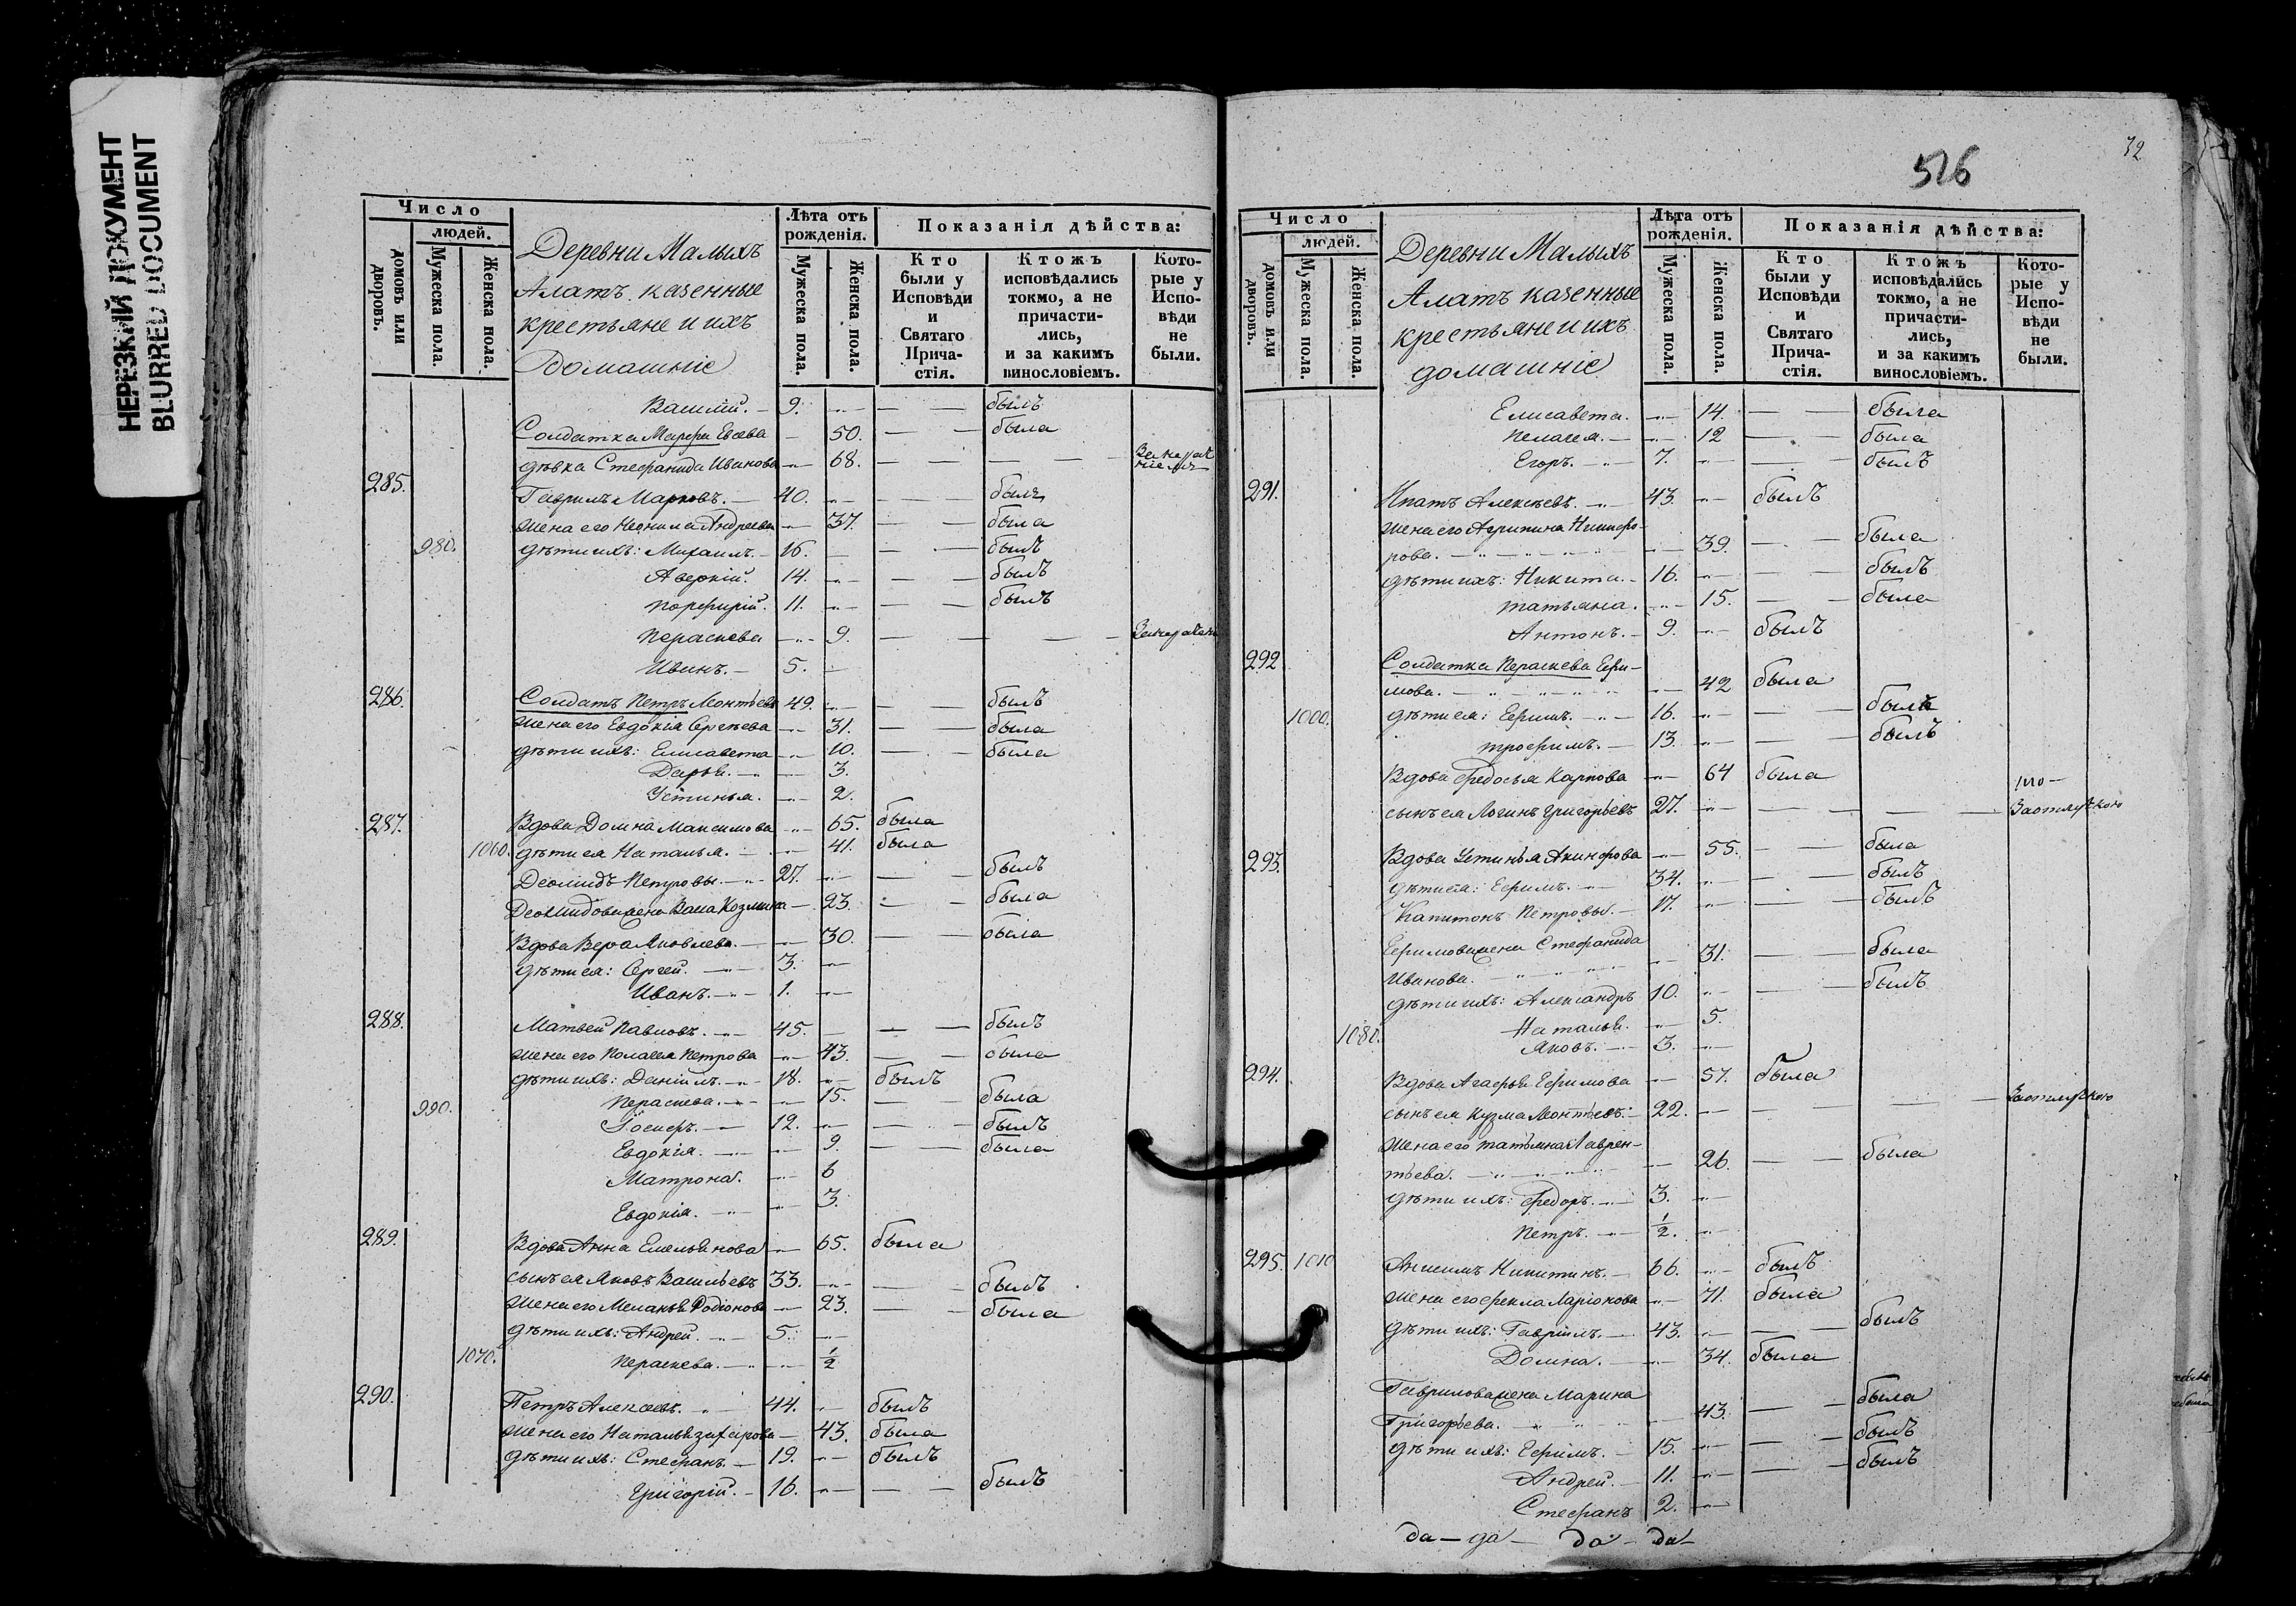 НЕРЕЗКИЙ ДОКУМЕНТ
BLURRED DOCUMENT
Число
людей.
домовъ или дворовъ.
Мужеска пола.
Женска пола.
Деревни Малыхъ
Алатъ казенные
крестьяне и ихъ
домашніе
Лѣта отъ рожденія.
Мужеска пола.
Женска пола.
Показанія дѣйства:
Кто были у Исповѣди и Святаго Прича-стія.
Ктожъ исповѣдались токмо, а не причасти-лись, и за какимъ винословіемъ.
Кото-рые у Испо-вѣди не были.
Василій. 9. былъ
Солдатка Марфа 50. была
дѣвка Стефанида Иванова 68.
285. Гаврилъ Марковъ. 40. былъ
жена его Неонила Андреева 37. была
980. дѣти ихъ: Михаилъ. 16. былъ
Аверкій. 14. былъ
Порфирій. 11. былъ
Параскева 9.
Иванъ. 5.
286. Солдатъ Петръ Монтѣевъ 49. былъ
жена его Евдокія Сергѣева 31. была
дѣти ихъ: Елисавета 10. была
Дарья. 3.
Устинья. 2.
287. Вдова Домна Максимова 65. была
1060. дѣти ея Наталья. 41. была
Деомидъ Петровы. 27. былъ
Деомидова жена Козмина 23. была
Вдова Вера Яковлева. 30. была
дѣти ея: Сергей. 3.
Иванъ. 1.
288. Матвей Павловъ. 45. былъ
жена его Пелагея Петрова 43. была
дѣти ихъ: Даніилъ. 18. былъ
990. Параскева. 15. была
Іосифъ. 12. былъ
Евдокія. 9. была
Матрона. 6
Евдокія. 3.
289. Вдова Анна Емельянова 65. была
сынъ ея Яковъ Васильевъ 33. былъ
жена его Меланья Родіонова 23. была
дѣти ихъ: Андрей. 5.
1070. Параскева. 1/2
290. Петръ Алексѣевъ. 44. былъ
жена его Наталья Захарова 43. была
дѣти ихъ: Стефанъ. 19. былъ
Григорій. 16. былъ
526
32
Число
людей.
домовъ или дворовъ.
Мужеска пола.
Женска пола.
Деревни Малыхъ
Алатъ казенные
крестьяне и ихъ
домашніе
Лѣта отъ рожденія.
Мужеска пола.
Женска пола.
Показанія дѣйства:
Кто были у Исповѣди и Святаго Прича-стія.
Ктожъ исповѣдались токмо, а не причасти-лись, и за какимъ винословіемъ.
Кото-рые у Испо-вѣди не были.
Елисавета. 14. была
Пелагея. 12 была
Егоръ. 7. былъ
291. Ипатъ Алексѣевъ. 43. былъ
жена его Агрипина Никифо-
рова. 39. была
дѣти ихъ: Никита. 16. былъ
Татьяна. 15. была
Антонъ. 9. былъ
292. Солдатка Параскева Ефи-
мова. 42 была
1000. дѣти ея: Ефимъ. 16. былъ
Трофимъ. 13. былъ
Вдова Федосья Карпова 64 была
сынъ ея Логинъ Григорьевъ 27. За отлучкою
293. Вдова Устинья Акинфова 55. была
дѣти ея: Ефимъ. 34. былъ
Капитонъ Петровы. 17. былъ
Ефимова жена Стефанида
Иванова. 31. была
дѣти ихъ: Александръ 10. былъ
1080. Наталья. 5.
Яковъ. 3.
294. Вдова Агафья Ефимова 57. была
сынъ ея Кузма Монтѣевъ. 22. За отлучкою
жена его Татьяна Лаврен-
тьева. 26. была
дѣти ихъ: Федоръ. 3.
Петръ. 1/2.
295. 1010 Анисимъ Никитинъ. 66. былъ
жена его Фекла Ларіонова 71. была
дѣти ихъ: Гавріилъ. 43. былъ
Домна. 34. была
Гаврилова жена Марина
Григорьева. 43. была
дѣти ихъ: Ефимъ. 15. былъ
Андрей. 11. былъ
Стефанъ 2.
да – да – да – да –